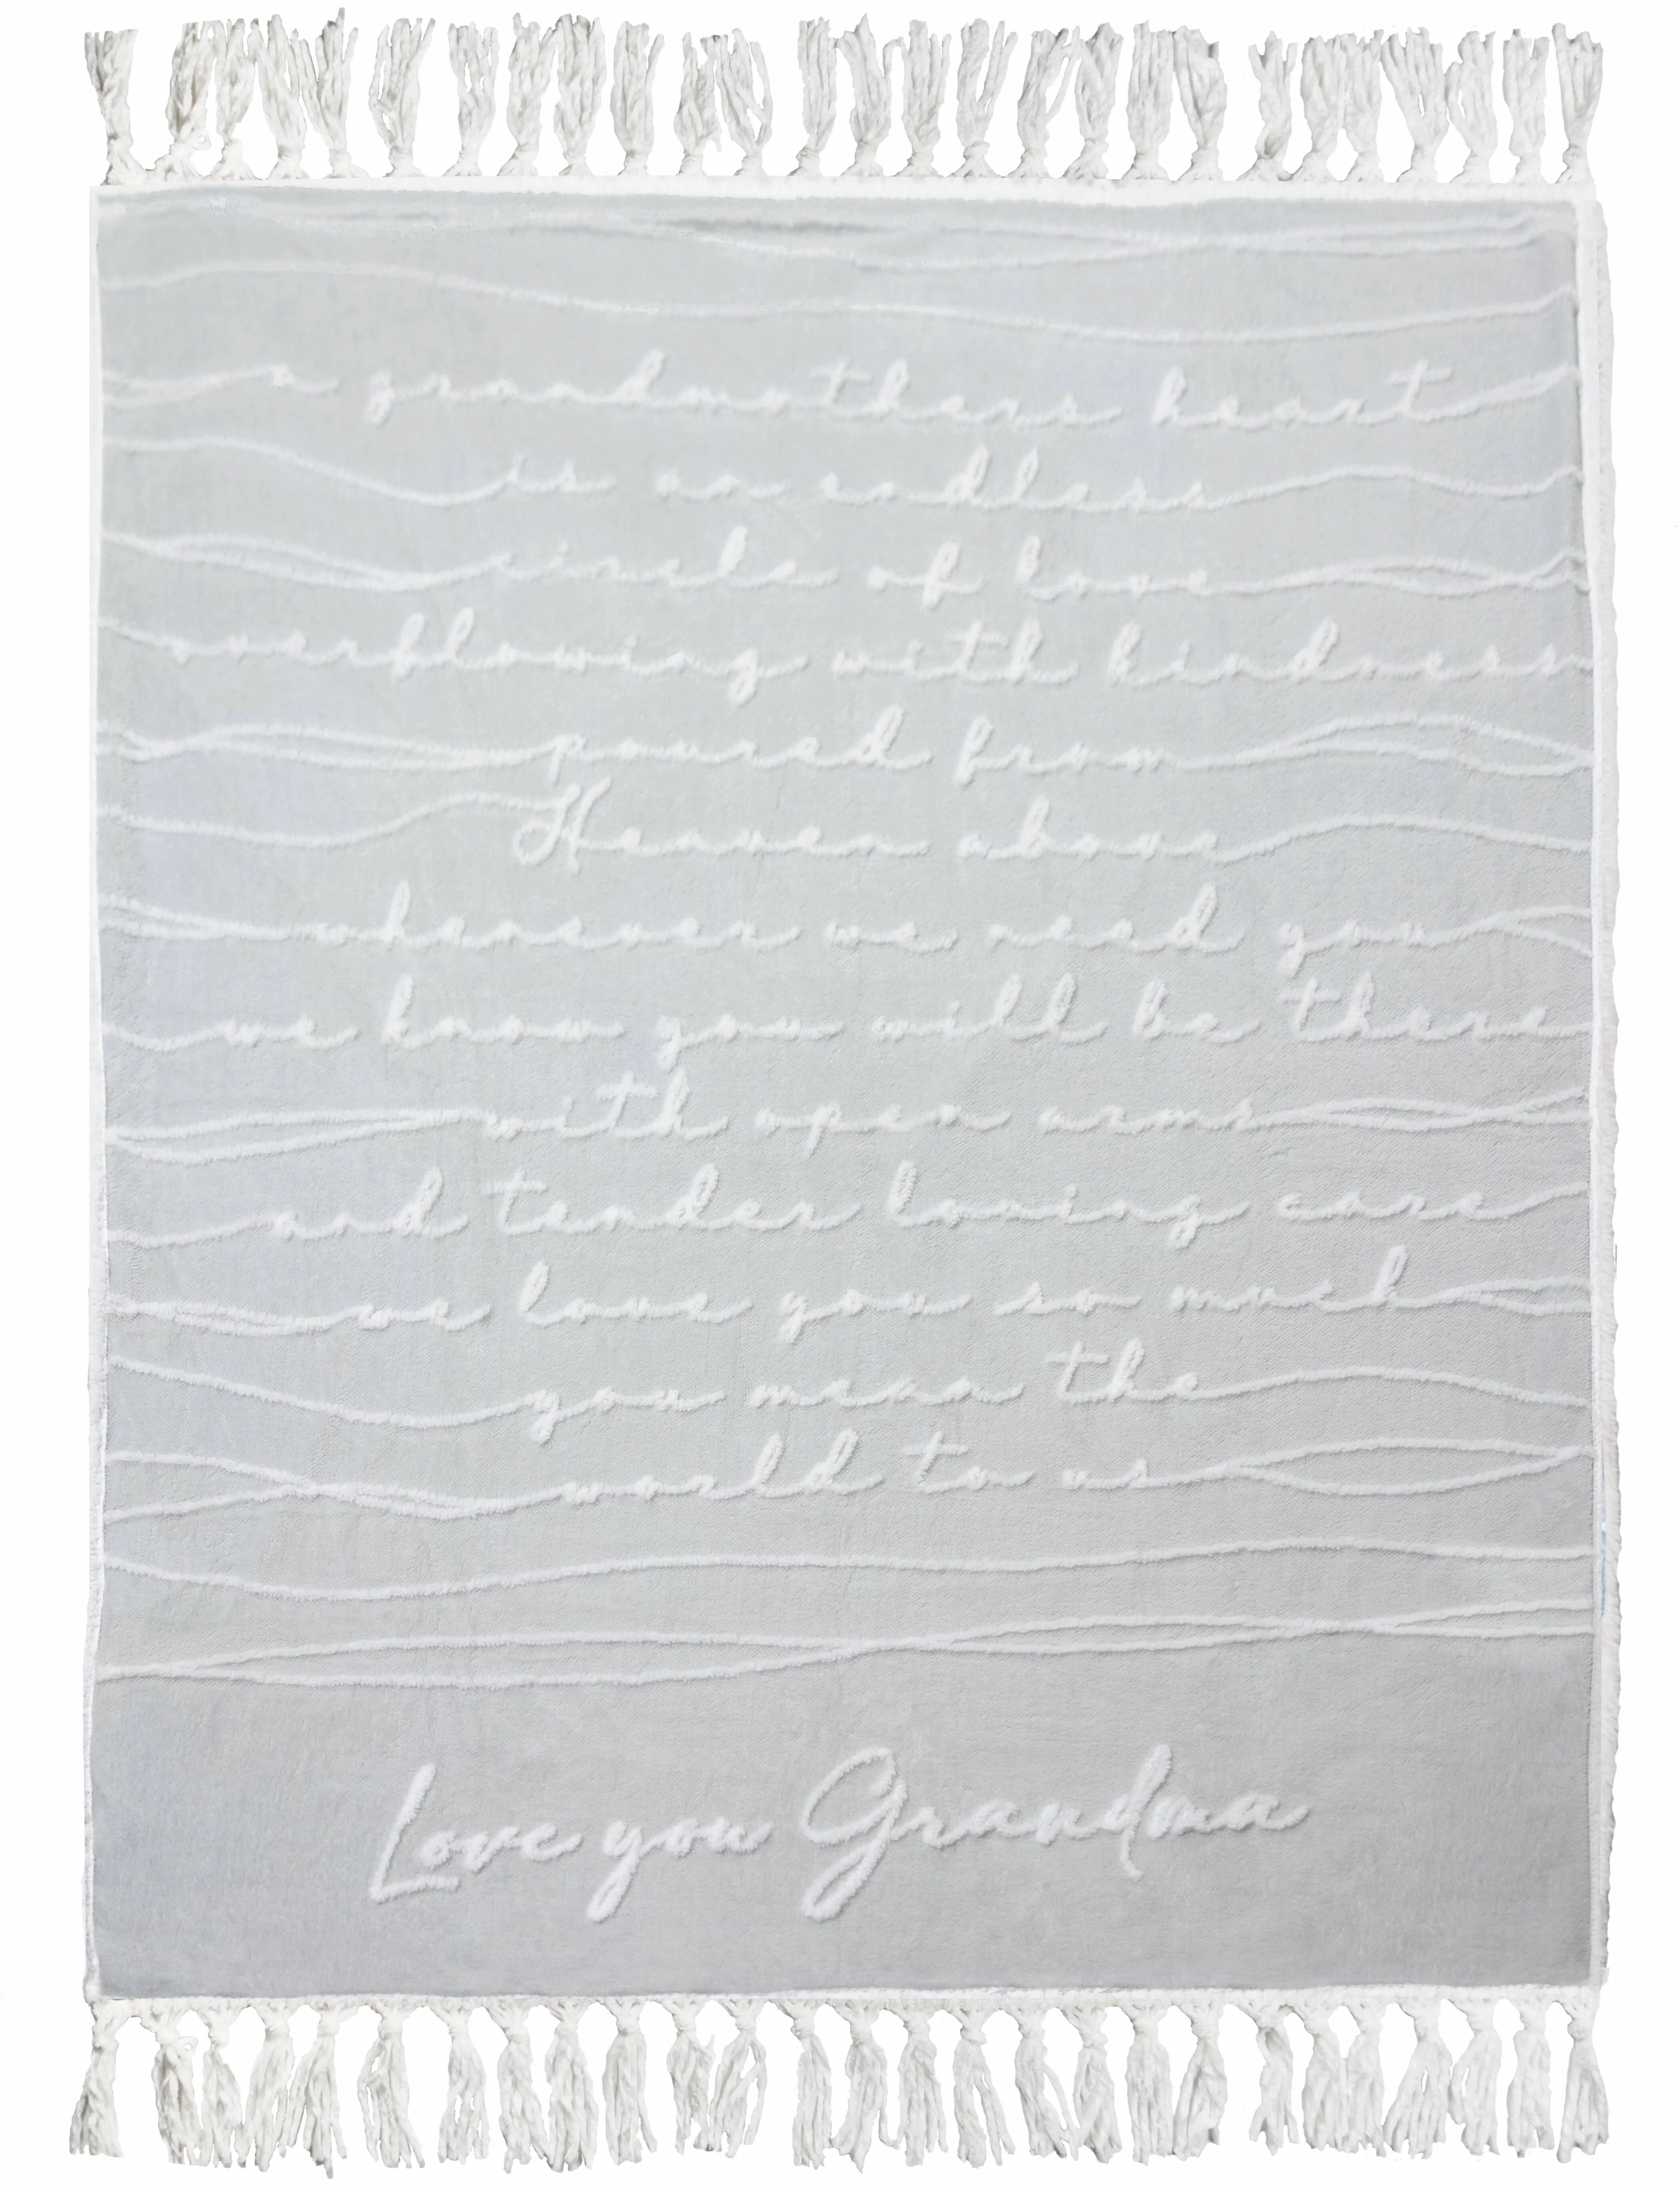 a grandmothers heart
is an endless
circle of love
overflowing with kindness
poured from
Heaven above
whenever we need you
we know you will be there
with open arms
and tender loving care
we love you so much
you mean the
world to us
Love you Grandma